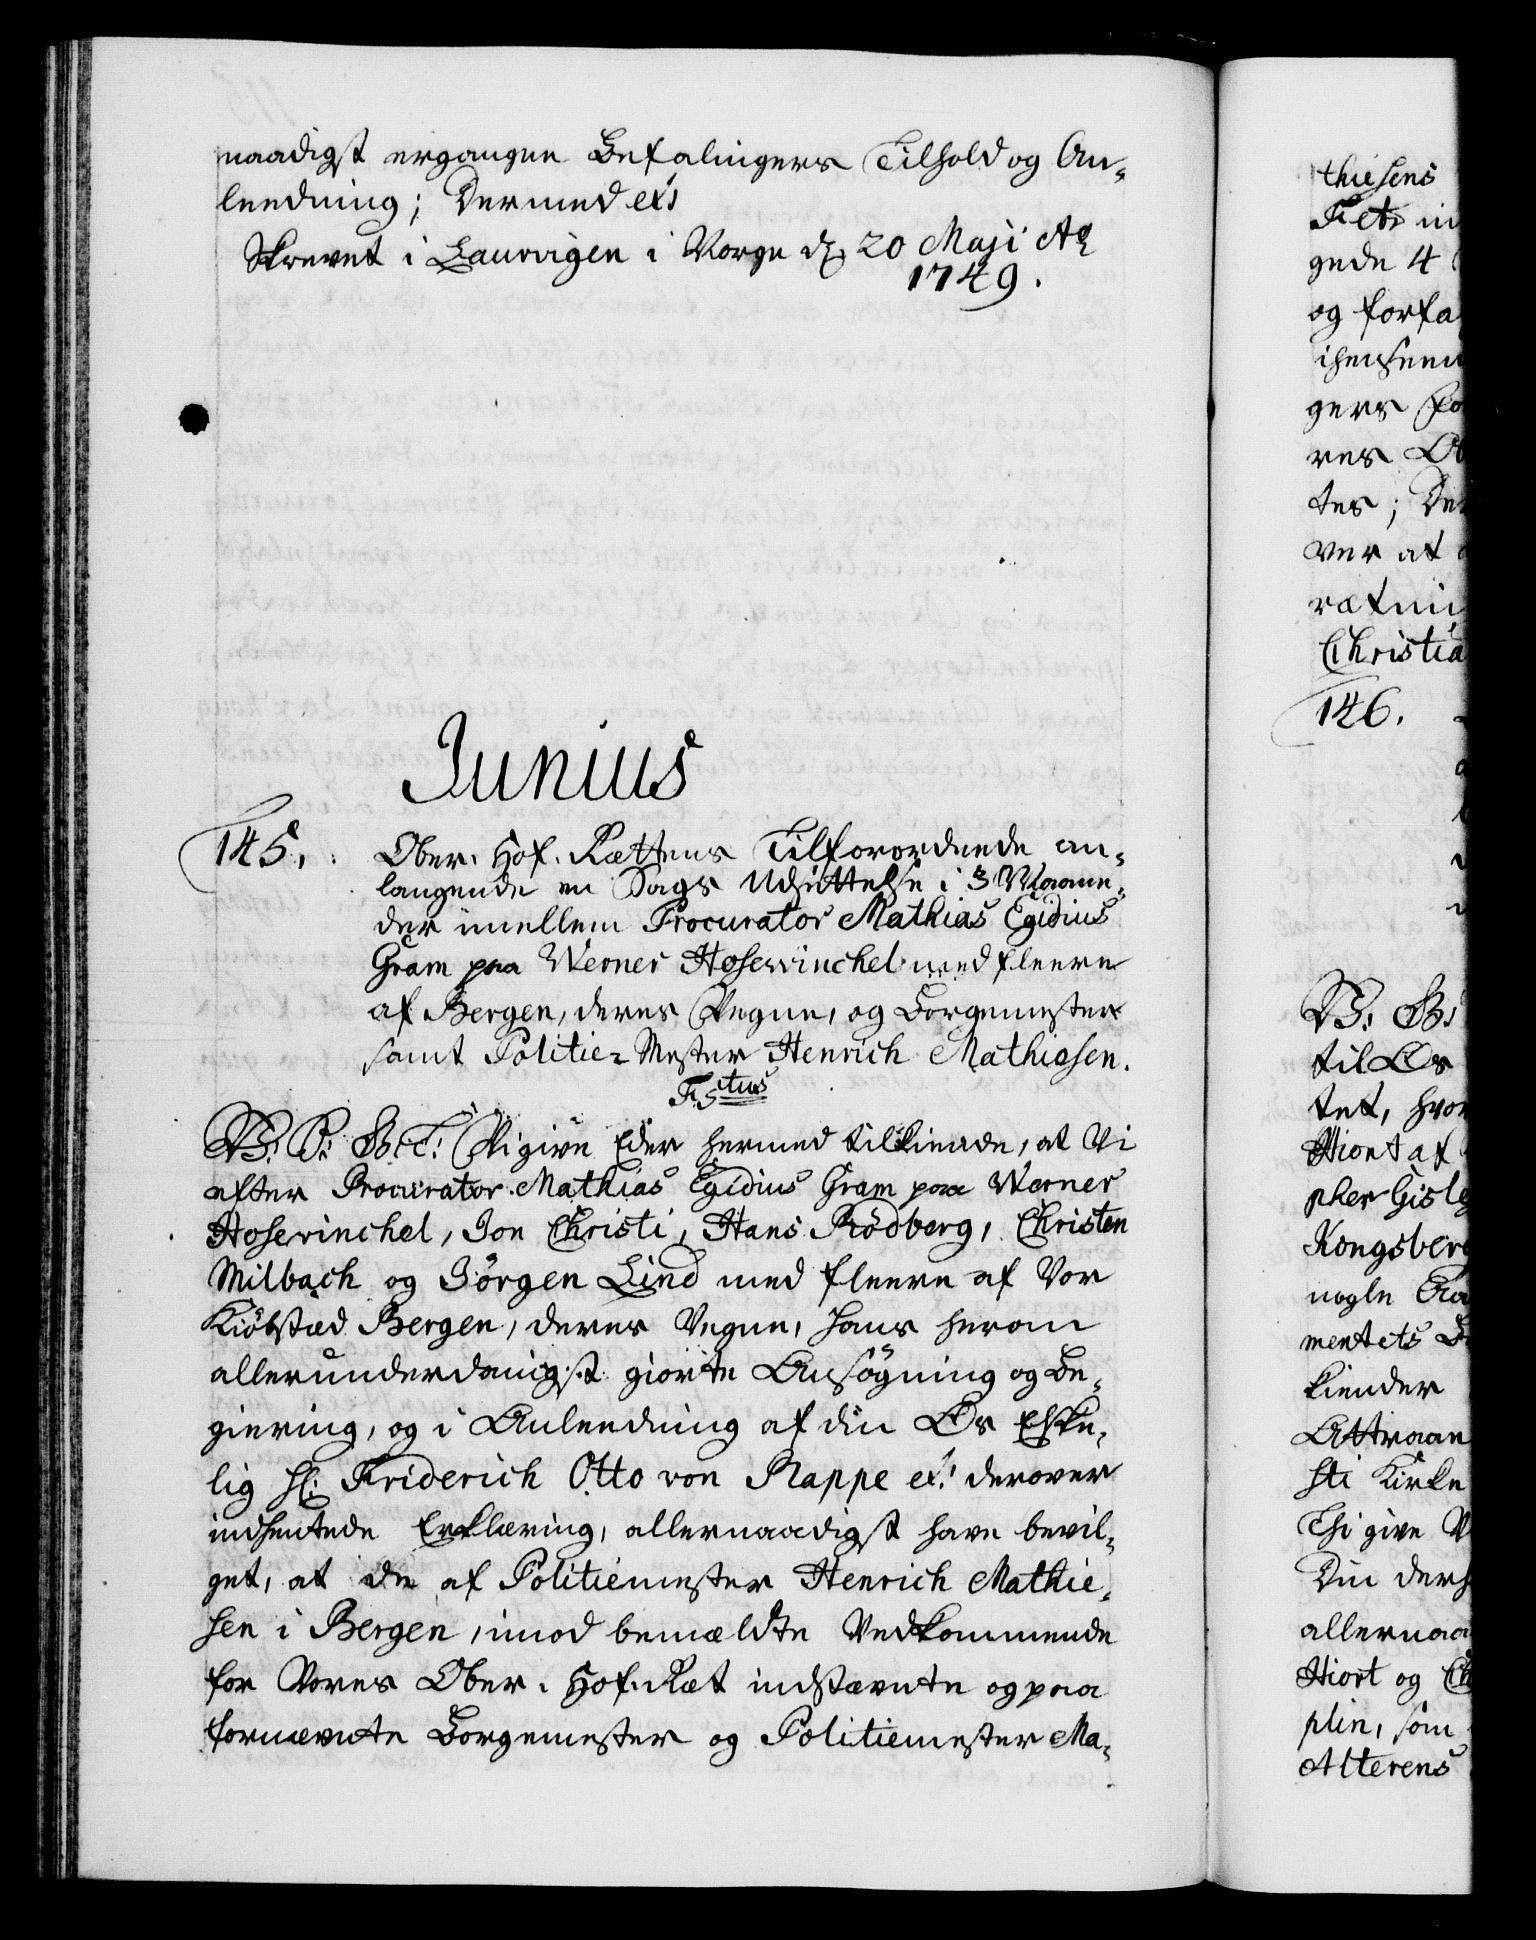 naadigst ergangne Befalingers Tilhold og An-
leedning; Dermed etc
Skrevet i Laurvigen i Norge d. 20 Maji Ao
1749.
Junius
145. Ober-Hof-Rettens Tilforordnede an-
langende en Sags Udsættelse i 3 Maane-
der imellem Procurator Mathias Egidius
Gram paa Werner Hosewinchel med fleere
af Bergen, deres Vegne, og Borgemester
samt Politie-Mester Henrich Mathiesen.
F. 5tus
W. G. G. T: Vi give Eder hermed tilkiende, at Vi
efter Procurator Mathias Egidius Gram paa Werner
Hosewinchel, Jon Christi, Hans Rödberg, Christen
Milbach og Jörgen Lind med fleere af Vor
Kiöbstæd Bergen, deres Vegne, hans herom
allerunderdanigst giorte Ansögning og Be-
giering, og i Anleedning af din Os Elske-
lig Hr: Friderich Otto von Rappe etc: derover
indhentede Erklæring, allernaadigst have bevil-
get, at de af Politiemester Henrich Mathie-
sen i Bergen, imod bemældte Vedkommende
for Vores Ober-Hof-Ret indstævnte og paa
fornævnte Borgemester og Politiemester Ma-
thiesens
gede 4
og forfa
gers
res
tes; De
ver at
retni
Christia
146.
til Os
tet, hvor
Hiort af
pher Gisle
Kongsberg
nogle
mentets
kiender
Attraae
sti Kirke
Thi give
Din ders
allernaa
Hiort og
plin, som
Alterens